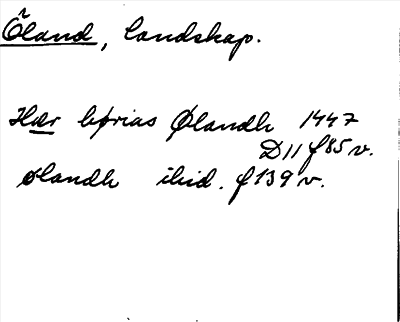 Öland, landskap.
Hær børias Ølandh 1447
D11 f 85 v.
ølandh ibid. f 139 v.